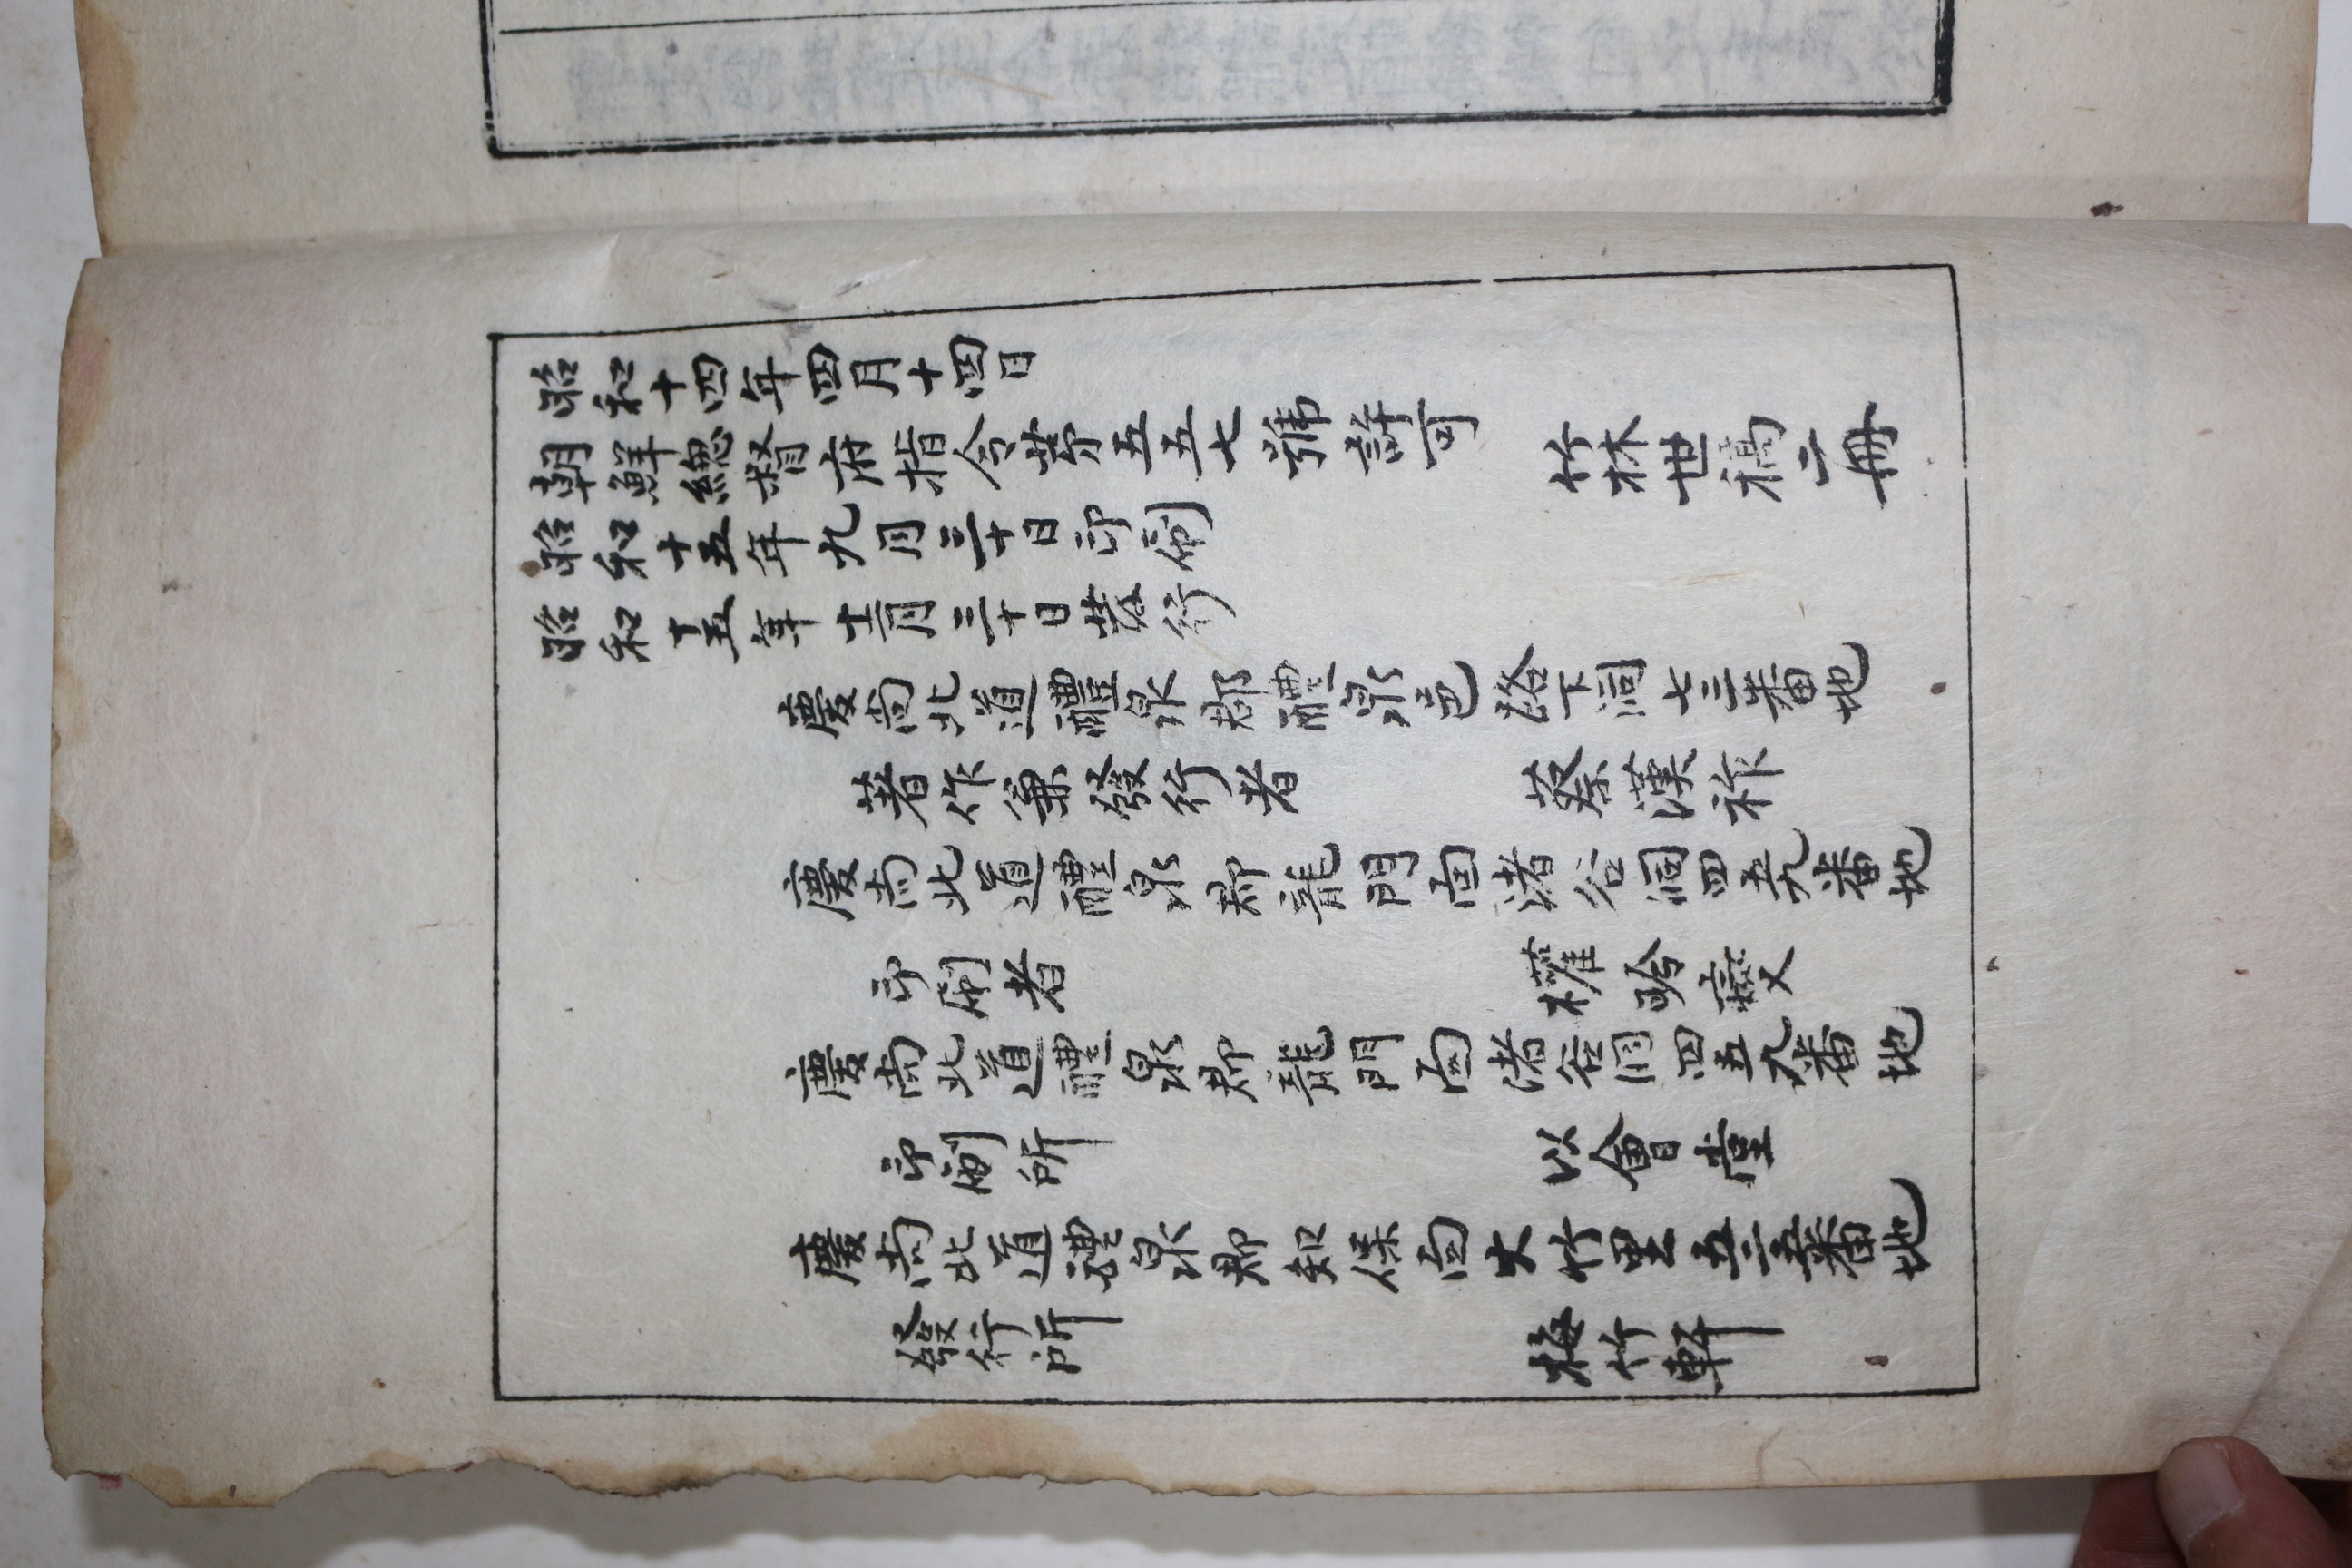 昭和十四年四月十四日
朝鮮總督府指令苐五五七號許可 竹林世稿二冊
昭和十五年九月三十日印刷
昭和十五年十二月三十日發行
慶尚北道醴泉郡醴泉邑路下洞七三番地
著作兼發行者 蔡漢祚
慶尚北道醴泉郡龍門面渚谷洞四五九番地
印刷者 權昤燮
慶尚北道醴泉郡龍門面渚谷洞四五九番地
印刷所 以會堂
慶尚北道醴泉郡知保面大竹里五二五番地
發行所 梅竹軒